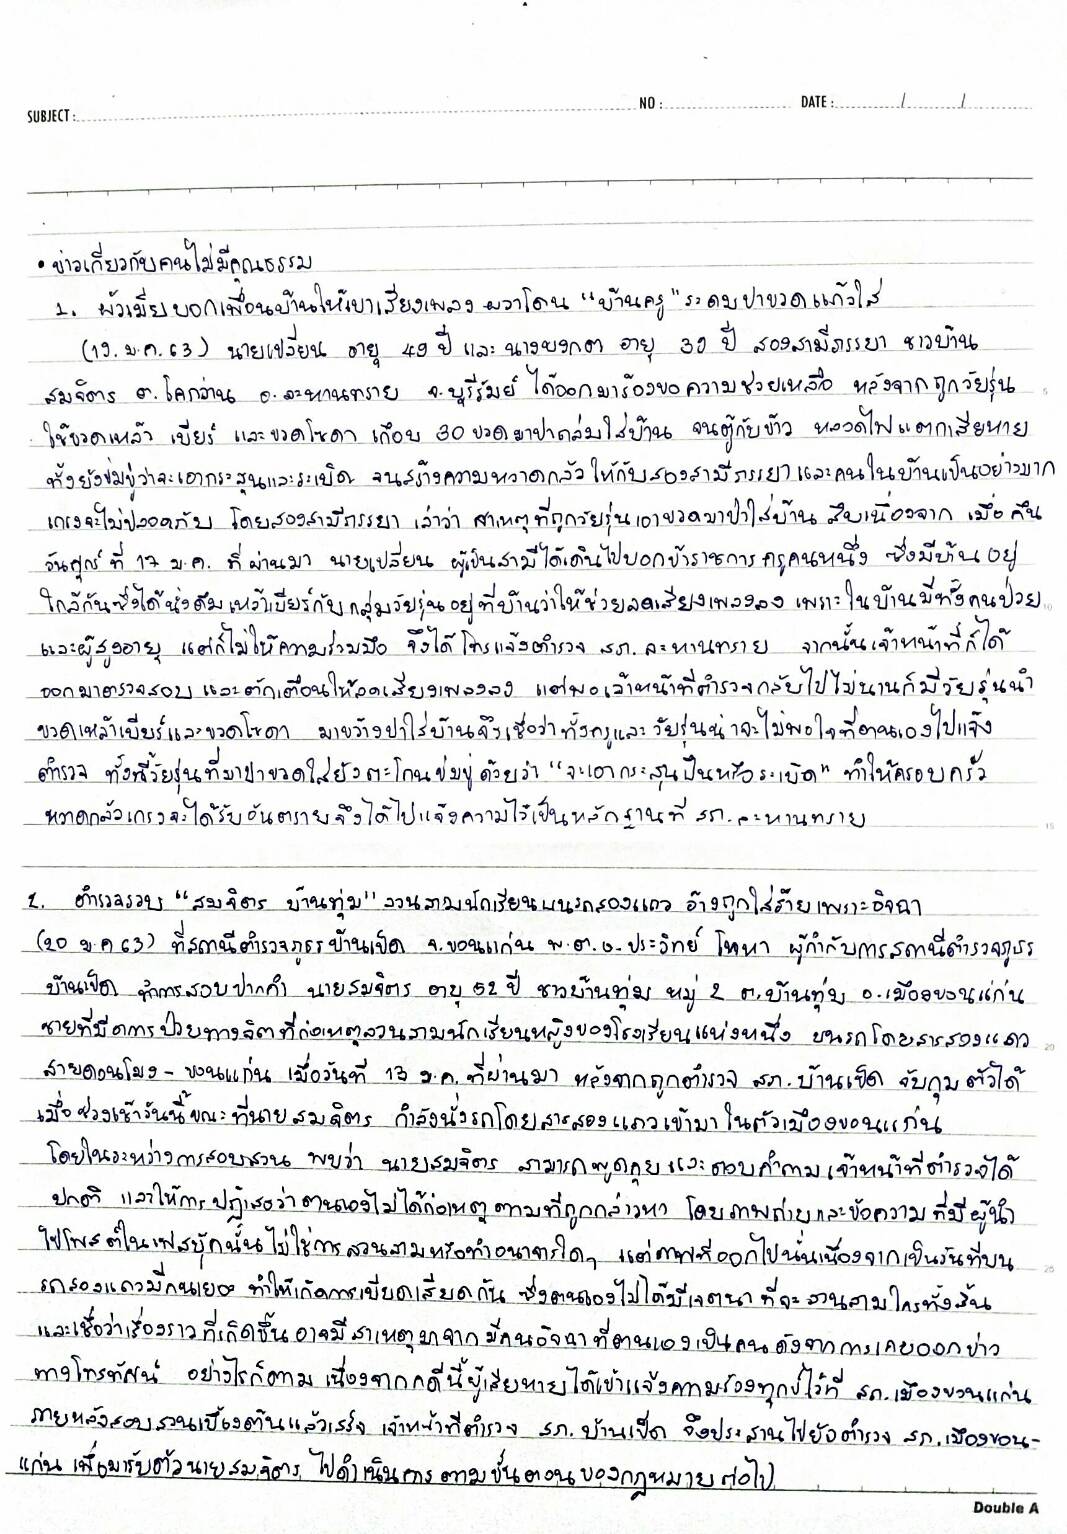 SUBJECT : NO : DATE : / /
• ข่าวเกี่ยวกับคนไม่มีคุณธรรม
1. ผัวเมียบอกเพื่อนบ้านให้เบาเสียงเพลง ผวาโดน "บ้านครู" ระดมปาขวดแก้วใส่
(19 ม.ค. 63) นายเปลี่ยน อายุ 49 ปี และ นางผกา อายุ 39 ปี สองสามีภรรยา ชาวบ้าน
สมจิตร ต.โคกว่าน อ.ละหานทราย จ.บุรีรัมย์ ได้ออกมาร้องขอความช่วยเหลือ หลังจากถูกวัยรุ่น
ใช้ขวดเหล้า เบียร์ และขวดโซดา เกือบ 30 ขวดมาปาถล่มใส่บ้าน จนตู้กับข้าว หลอดไฟแตกเสียหาย
ทั้งยังข่มขู่ว่าจะเอากระสุนและระเบิด จนสร้างความหวาดกลัว ให้กับสองสามีภรรยาและคนในบ้านเป็นอย่างมาก
เกรงจะไม่ปลอดภัย โดยสองสามีภรรยา เล่าว่า สาเหตุที่ถูกวัยรุ่นเอาขวดมาปาใส่บ้าน สืบเนื่องจาก เมื่อคืน
วันศุกร์ ที่ 17 ม.ค. ที่ผ่านมา นายเปลี่ยน ผู้เป็นสามีได้เดินไปบอกข้าราชการครูคนหนึ่ง ซึ่งมีบ้านอยู่
ใกล้กันซึ่งได้นั่งดื่มเหล้าเบียร์กับกลุ่มวัยรุ่นอยู่ที่บ้านว่าให้ช่วยลดเสียงเพลงลง เพราะในบ้านมีทั้งคนป่วย
และผู้สูงอายุ แต่ก็ไม่ให้ความร่วมมือ จึงได้โทรแจ้งตำรวจ สภ.ละหานทราย จากนั้นเจ้าหน้าที่ก็ได้
ออกมาตรวจสอบ และตักเตือนให้ลดเสียงเพลงลง แต่พอเจ้าหน้าที่ตำรวจกลับไปไม่นานก็มีวัยรุ่นนำ
ขวดเหล้าเบียร์และขวดโซดา มาขว้างปาใส่บ้านจึงเชื่อว่าทั้งครูและวัยรุ่นน่าจะไม่พอใจที่ตนเองไปแจ้ง
ตำรวจ ทั้งนี้วัยรุ่นที่มาปาขวดใส่ยังตะโกนข่มขู่ด้วยว่า "จะเอากระสุนปืนหรือระเบิด" ทำให้ครอบครัว
หวาดกลัวเกรงจะได้รับอันตรายจึงได้ไปแจ้งความไว้เป็นหลักฐานที่ สภ.ละหานทราย
2. ตำรวจรวบ "สมจิตร บ้านทุ่ม" ลวนลามนักเรียนบนรถสองแถว อ้างถูกใส่ร้ายเพราะอิจฉา
(20 ม.ค 63) ที่สถานีตำรวจภูธรบ้านเป็ด จ.ขอนแก่น พ.ต.อ.ประวิทย์ โทหา ผู้กำกับการสถานีตำรวจภูธร
บ้านเป็ด ทำการสอบปากคำ นายสมจิตร อายุ 52 ปี ชาวบ้านทุ่ม หมู่ 2 ต.บ้านทุ่ม อ.เมืองขอนแก่น
ชายที่มีอาการป่วยทางจิตที่ก่อเหตุลวนลามนักเรียนหญิงของโรงเรียนแห่งหนึ่ง บนรถโดยสารสองแถว
สายดอนโมง - ขอนแก่น เมื่อวันที่ 13 ม.ค. ที่ผ่านมา หลังจากถูกตำรวจ สภ.บ้านเป็ด จับกุมตัวได้
เมื่อช่วงเช้าวันนี้ขณะที่นายสมจิตร กำลังนั่งรถโดยสารสองแถวเข้ามาในตัวเมืองขอนแก่น
โดยในระหว่างการสอบสวน พบว่า นายสมจิตร สามารถพูดคุยและตอบคำถามเจ้าหน้าที่ตำรวจได้
ปกติ และให้การปฏิเสธว่าตนเองไม่ได้ก่อเหตุตามที่ถูกกล่าวหา โดยภาพถ่ายและข้อความที่มีผู้นำ
ไปโพสต์ในเฟสบุ๊กนั้นไม่ใช่การลวนลามหรือทำอนาจารใดๆ แต่ภาพที่ออกไปนั้นเนื่องจากเป็นวันที่บน
รถสองแถวมีคนเยอะ ทำให้เกิดการเบียดเสียดกัน ซึ่งตนเองไม่ได้มีเจตนาที่จะลวนลามใครทั้งสิ้น
และเชื่อว่าเรื่องราวที่เกิดขึ้นอาจมีสาเหตุมาจากมีคนอิจฉาที่ตนเองเป็นคนดังจากการเคยออกข่าว
ทางโทรทัศน์ อย่างไรก็ตาม เนื่องจากคดีนี้ผู้เสียหายได้เข้าแจ้งความร้องทุกข์ไว้ที่ สภ.เมืองขอนแก่น
ภายหลังสอบสวนเบื้องต้นแล้วเสร็จ เจ้าหน้าที่ตำรวจ สภ.บ้านเป็ด จึงประสานไปยังตำรวจ สภ.เมืองขอน-
แก่น เพื่อมารับตัวนายสมจิตร ไปดำเนินการตามขั้นตอนของกฎหมายต่อไป
Double A